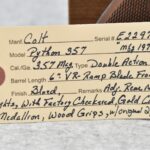 Manf. Colt Serial # E2297
Model Python 357 mfg 197
Cal./Ga. 357 Mag. Type Double Action
Barrel Length 6" VR-Ramp Blade Fron
Finish Blued, Remarks Adj. Rear
ghts, With Factory Checkered Gold C
Medallion, Wood Grips, w/original